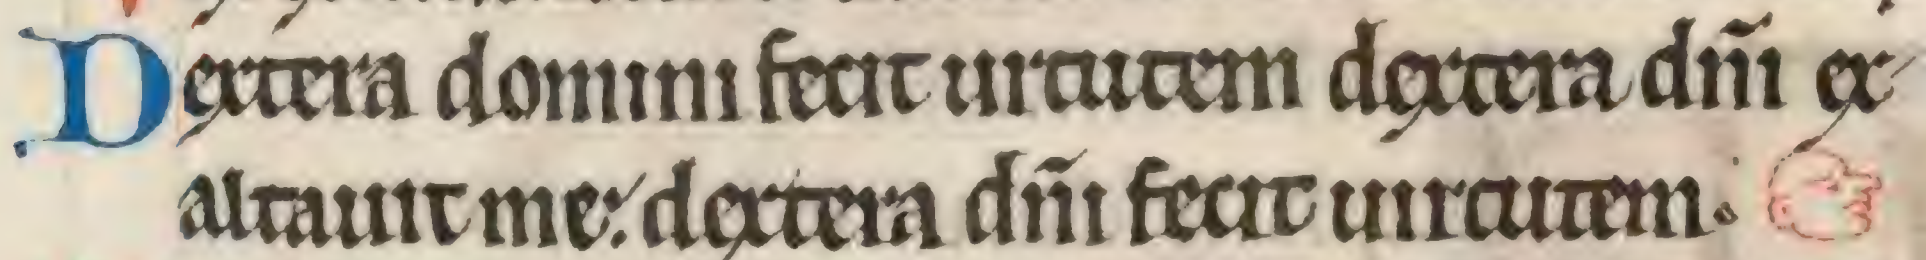 Dextera domini fecit uirtutem dextera dñi ex
altauit me: dextera dñi fecit uirtutem.